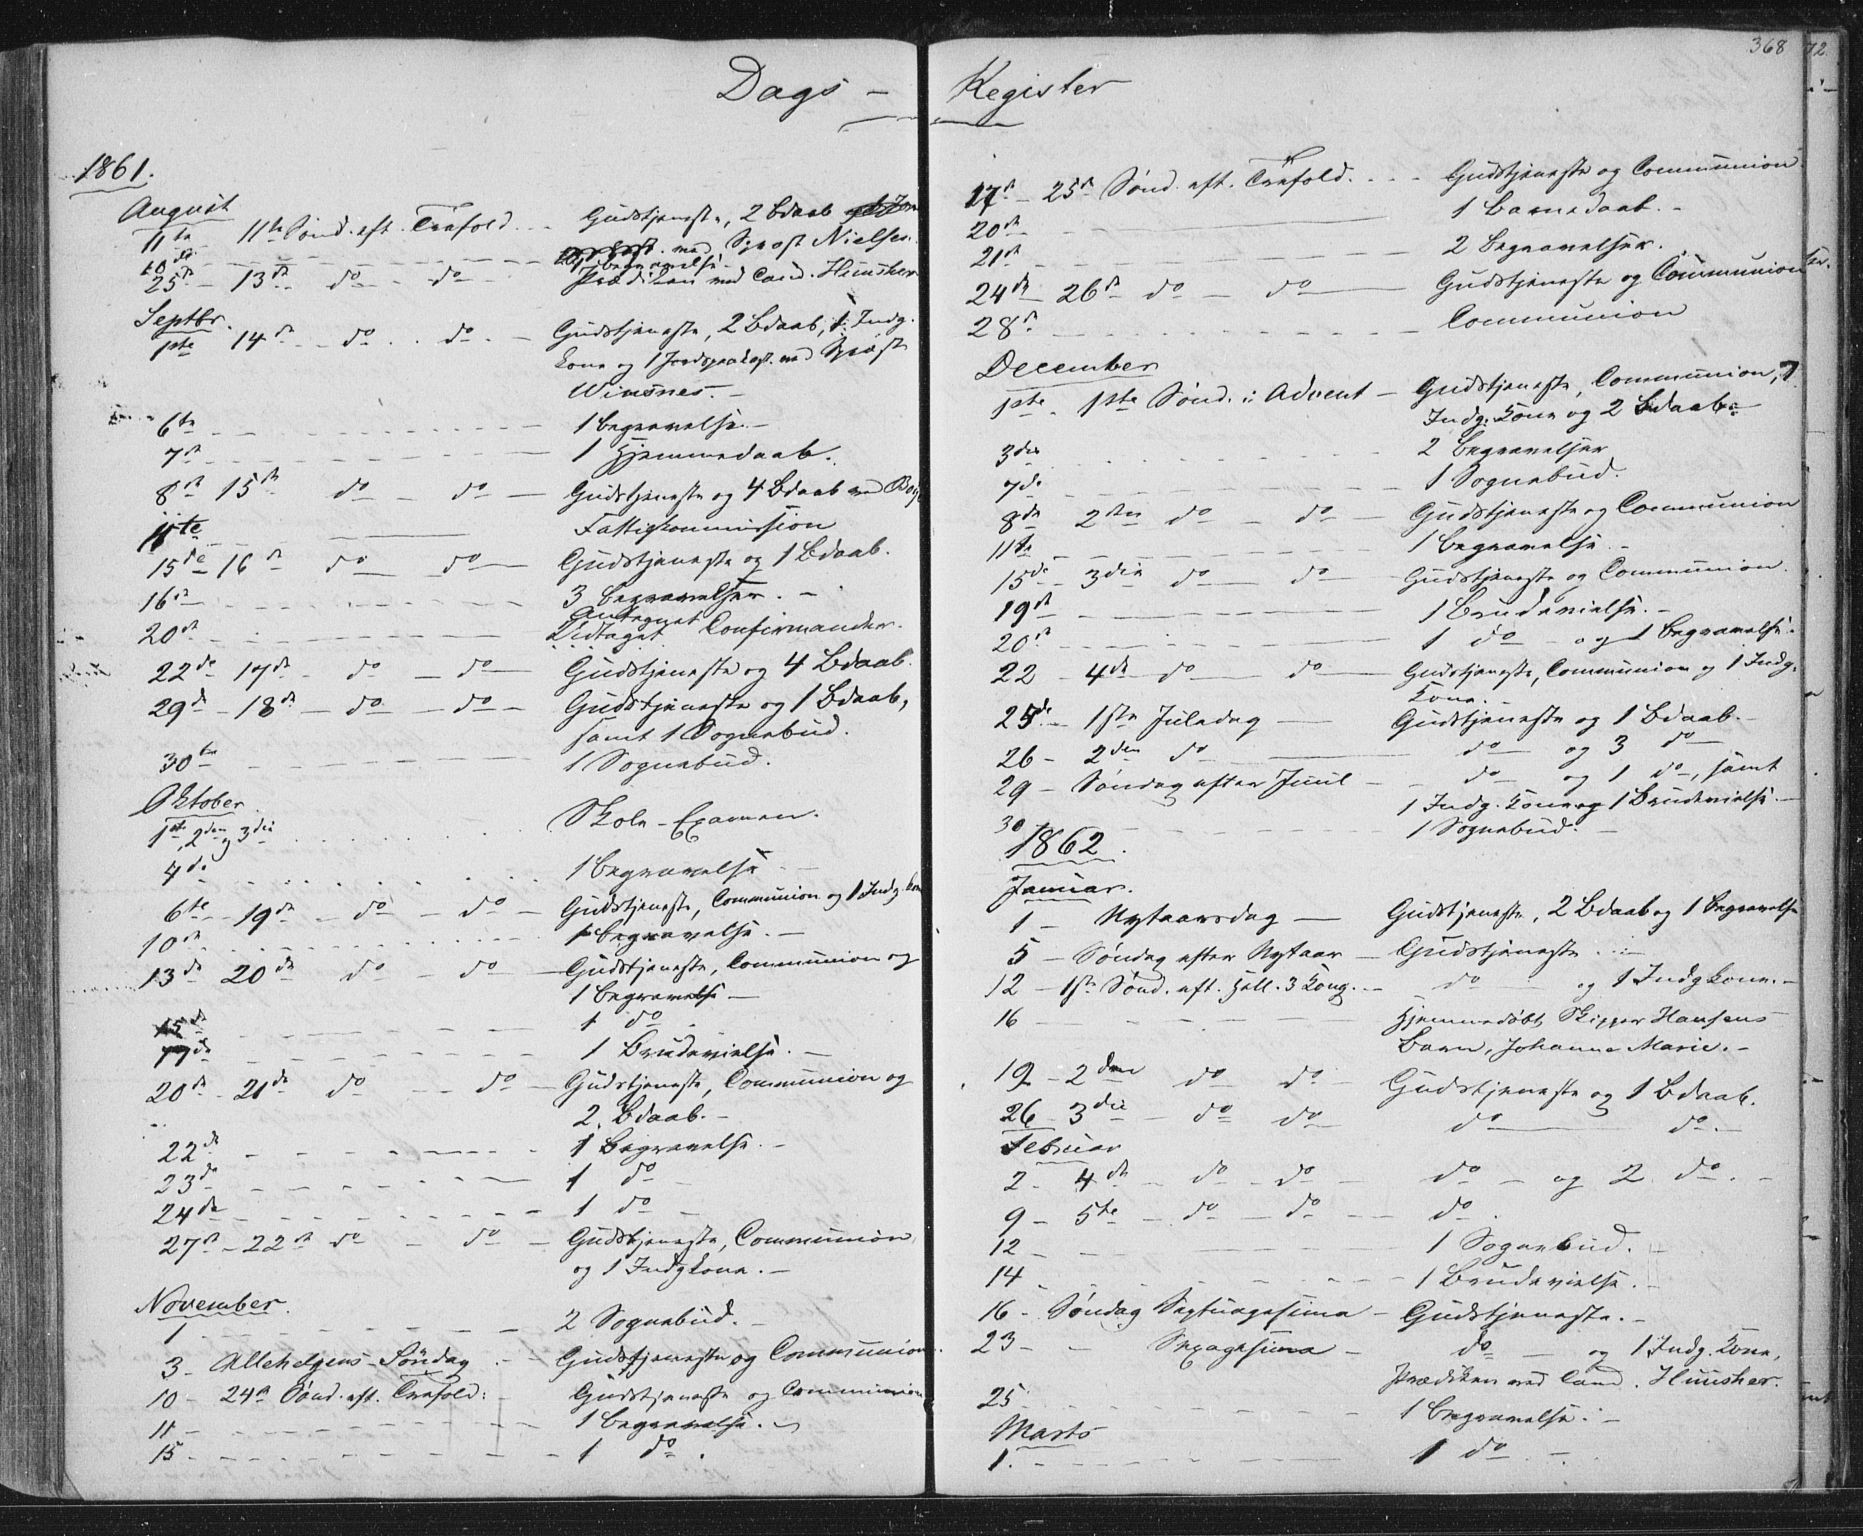 368
72.
Dags - Register
1861.
August
11te 11te Sønd. eft. Trefold. Gudstjeneste, 2 Bdaab
ved Sgpst Nielsen.
20de 1 Begravelse
25de - 13de do - do - Prædiken ved Cand. Huusher
Septbr.
1ste 14de do . . do . - Gudstjeneste, 2 Bdaab, 1. Indg.
kone og 1 Jordspaakast. ved Sgpst
Winsnes. -
6te 1 Begravelse. -
7de 1 Hjemmedaab.
8de 15de do - do - Gudstjeneste og 4 Bdaab ved
11te Fattigkommission
15de 16de do do Gudstjeneste og 1 Bdaab.
16de 3 Begravelser. -
20de Antegnet Confirmander.
22de 17de do - do - Gudstjeneste og 4 Bdaab.
29de - 18de - do - do - Gudstjeneste og 1 Bdaab,
samt 1 Sognebud.
30te 1 Sognebud.
Oktober
1ste, 2den og 3die Skole-Examen.
4de 1 Begravelse -
6te - 19de - do - do - Gudstjeneste, Communion og 1 Indg. kone
10de 1 Begravelse. -
13de 20de do - do - Gudstjeneste, Communion og
1 Begravelse -
15de 1 do
17de 1 Brudevielse. -
20de - 21de do - do - Gudstjeneste, Communion og
2. Bdaab. -
22de 1 Begravelse. -
23de 1 do -
24de 1 do -
27de - 22de do - do - Gudstjeneste, Communion,
og 1 Indgkone. -
November.
1 2 Sognebud. -
3 - Allehelgens-Söndag - Gudstjeneste og Communion.
10 - 24de Sönd. eft. Trefold: Gudstjeneste og Communion
11 - 1 Begravelse. -
15 - 1 do .
17de - 25de Sønd. eft. Trefold. . . - Gudstjeneste og Communion
20de 1 Barnedaab. -
21de 2 Begravelser.
24de - 26de do - do Gudstjeneste og Communion
28de Communion
December
1ste - 1ste Sønd. i Advent - Gudstjeneste, Communion, 7
Indg. Kone og 2 Bdaab.
3die 2 Begravelser
7de 1 Sognebud.
8de 2den do - do - Gudstjeneste og Communion
11te 1 Begravelse. -
15de - 3die do - do - Gudstjeneste og Communion.
19de 1 Brudevielse. -
20de 1 do - og 1 Begravelse.
22 - 4de do do - Gudstjeneste, Communion og 1 Indg.
Kone. -
25de - 1ste Juledag - Gudstjeneste og 1 Bdaab. -
26 - 2den do do og 3 do
29 - Søndag efter Juul - do og 1 do, samt
1 Indg. Kone og 1 Brudevielse. -
30 1 Sognebud. -
1862.
Januar.
1 - Nytaarsdag - Gudstjeneste, 2 Bdaab og 1 Begravelse
5 - Søndag efter Nytaar - Gudstjeneste
12 - 1ste Sønd. eft. Hell. 3 Kong. - do og 1 Indgkone. -
16 Hjemmedøbt Skipper Hansens
Barn, Johanne Marie. -
19 - 2den do do Gudstjeneste og 1 Bdaab.
26 - 3die - do do do do. -
Februar
2 - 4de - do - do - do - og 2 do. -
9 - 5te - do - do - do .
12 1 Sognebud.
14 1 Brudevielse.
16 - Søndag Septuagesima - Gudstjeneste. -
23 - - Sexagesima - do - og 1 Indg. Kone,
Prædiken ved Cand. Huusher.
25 1 Begravelse. -
Marts
1. 1 do -